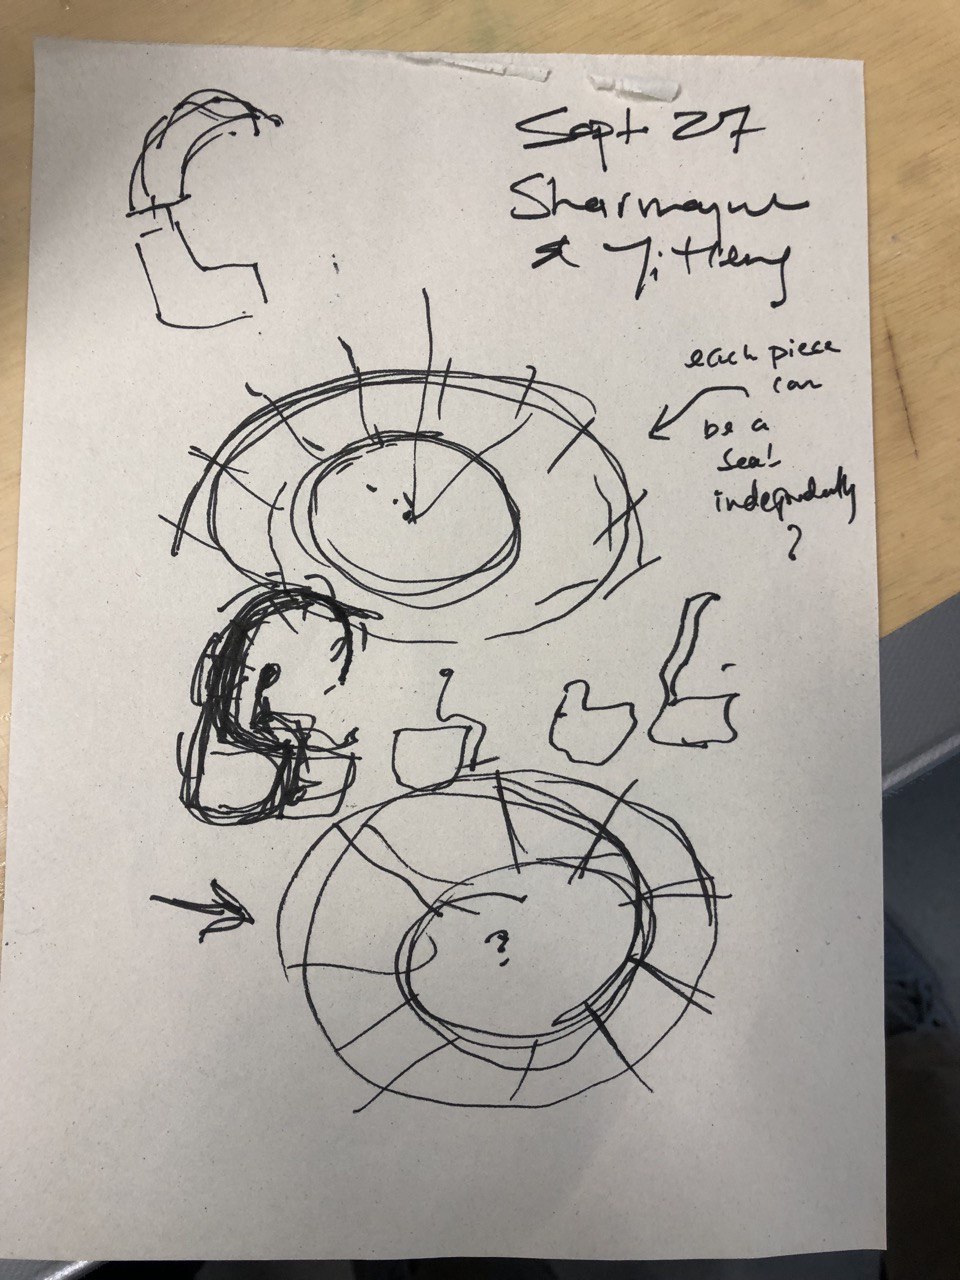 Sept. 27
Sharmayne
& Yitleng
each piece
can
be a
seat
independently
?
?